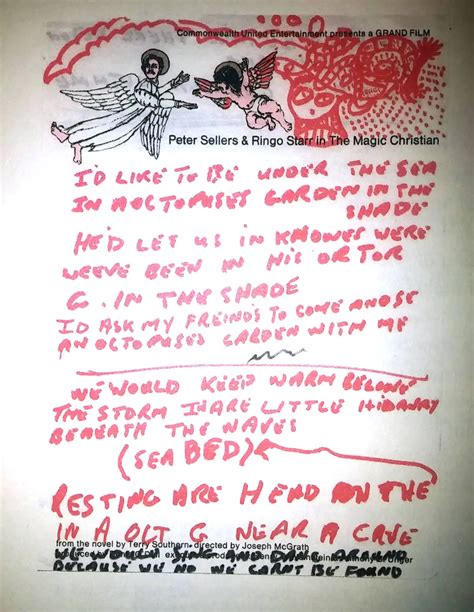 Commonwealth United Entertainment presents a GRAND FILM
Peter Sellers & Ringo Starr in The Magic Christian
I'D LIKE TO BE UNDER THE SEA
IN A OCTOPUSES GARDEN IN THE
SHADE
HE'D LET US IN KNOWES WERE
WEEVE BEEN IN HIS OR TOR
G. IN THE SHADE
I'D ASK MY FREINDS TO COME AN SE
AN OCTOPUSES GARDEN WITH ME
WE WOULD KEEP WARM BELOWE
THE STORM IN ARE LITTLE HIDAWAY
BENEATH THE WAVES
(SEA BED)
RESTING ARE HEND ON THE
IN A OCT G NEAR A CAVE
from the novel by Terry Southern directed by Joseph McGrath
WE WOULD SING AND DANCE AROUND
BECAUSE WE NO WE CARNT BE FOUND